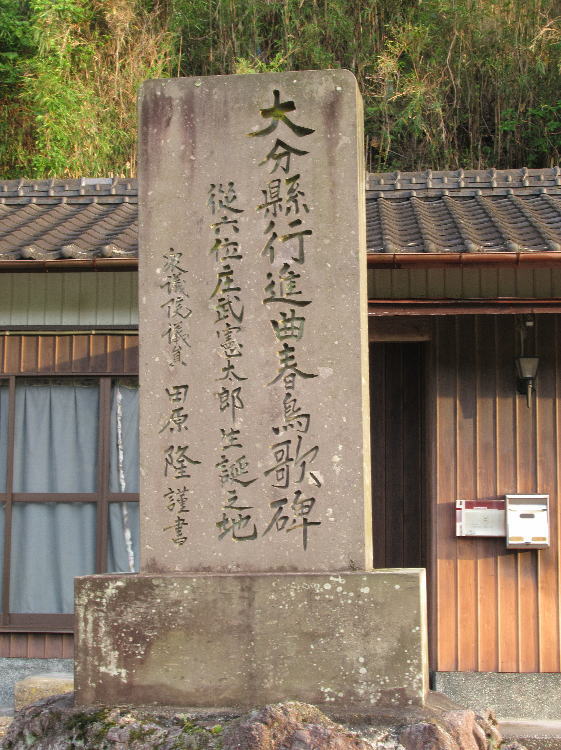 大分縣行進曲春鳥歌碑
從六位庄武憲太郎生誕之地
衆議院議員 田原 隆 謹書